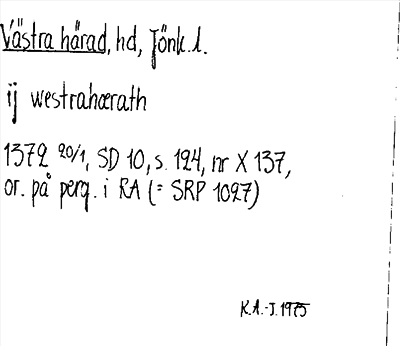 Västra härad, hd, Jönk. l.
ij westrahærath
1372 20/1, SD 10, s. 124, nr X 137,
or. på perg. i RA (= SRP 1027)
K.A.-J. 1975